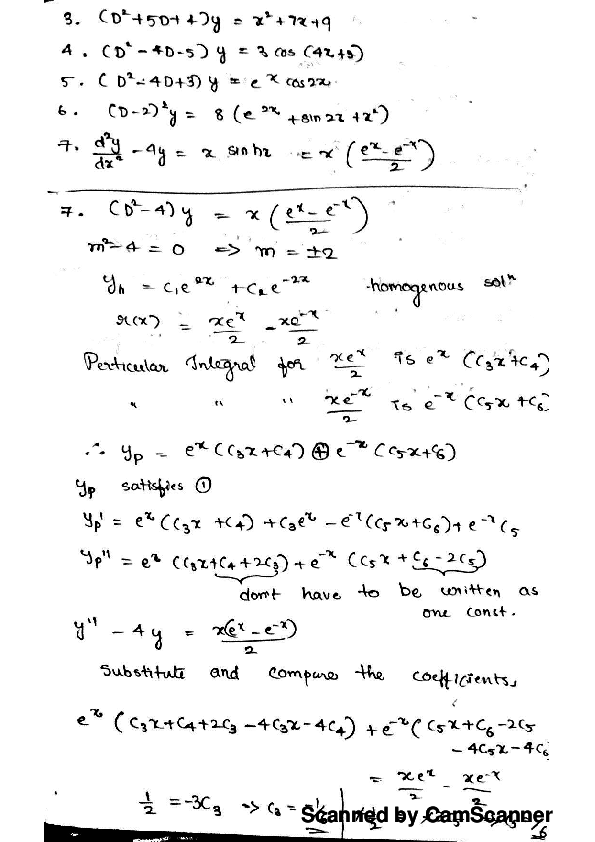 3. (D²+5D+4)y = x²+7x+9
4. (D²-4D-5)y = 3 cos (4x+3)
5. (D²-4D+3)y = eˣ cos2x
6. (D-2)²y = 8(e²ˣ + sin 2x + x²)
7. d²y/dx² - 4y = x sin hx = x((eˣ-e⁻ˣ)/2)
7. (D²-4)y = x((eˣ-e⁻ˣ)/2)
m²-4 = 0 => m = ±2
yₕ = c₁e²ˣ + c₂e⁻²ˣ -homogenous solⁿ
r(x) = xeˣ/2 - xe⁻ˣ/2
Perticular Integral for xeˣ/2 is eˣ(C₃x+C₄)
" " " xe⁻ˣ/2 is e⁻ˣ(C₅x+C₆)
∴ yp = eˣ(C₃x+C₄) ⊕ e⁻ˣ(C₅x+C₆)
yp satisfies ①
yp' = eˣ(C₃x+C₄) + C₃eˣ - e⁻ˣ(C₅x+C₆) + e⁻ˣC₅
yp'' = eˣ(C₃x+C₄+2C₃) + e⁻ˣ(C₅x+C₆-2C₅)
dont have to be written as
one const.
y'' - 4y = x(eˣ-e⁻ˣ)/2
Substitute and compare the coefficients,
eˣ(C₃x+C₄+2C₃-4C₃x-4C₄) + e⁻ˣ(C₅x+C₆-2C₅
-4C₅x-4C₆
= xeˣ/2 - xe⁻ˣ/2
1/2 = -3C₃ => C₃ =
Scanned by CamScanner